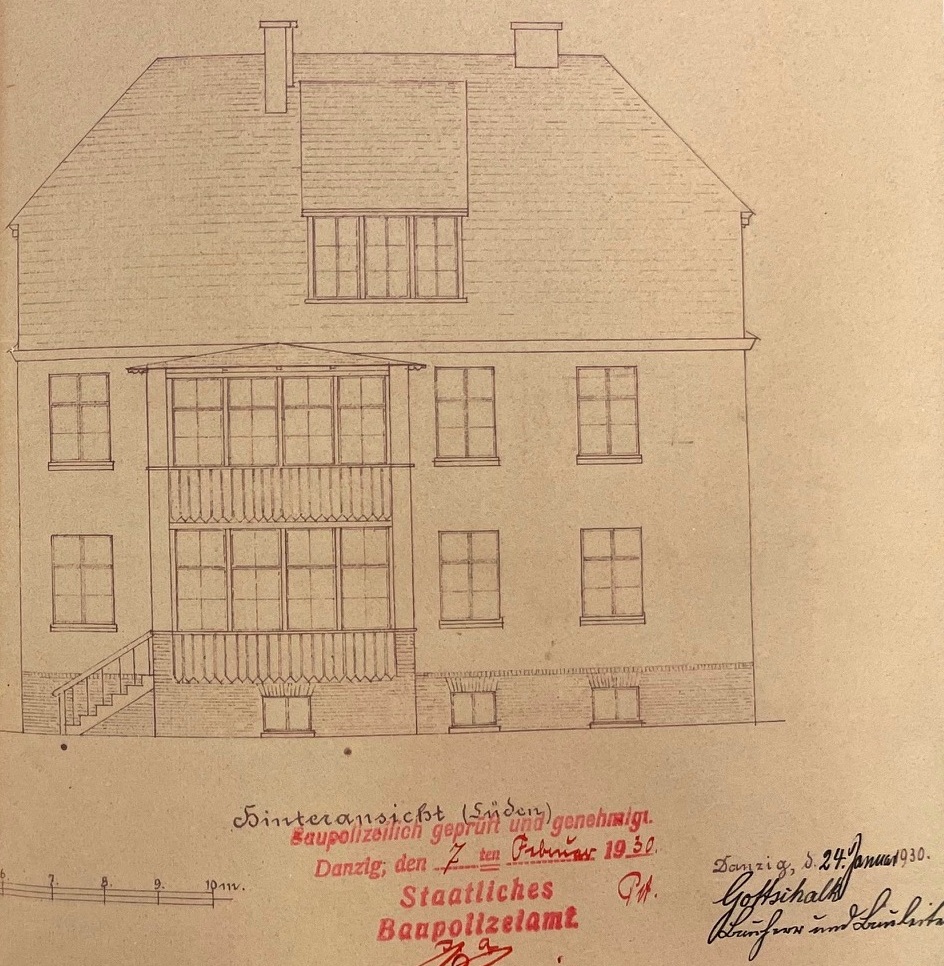 Hinteransicht (Süden)
Baupolizeilich geprüft und genehmigt.
Danzig, den 7 ten Februar 1930.
Staatliches
Baupolizeiamt.
6. 7. 8. 9. 10 m.
Danzig, d. 24. Januar 1930.
Gottschalk
Bauherr und Bauleite